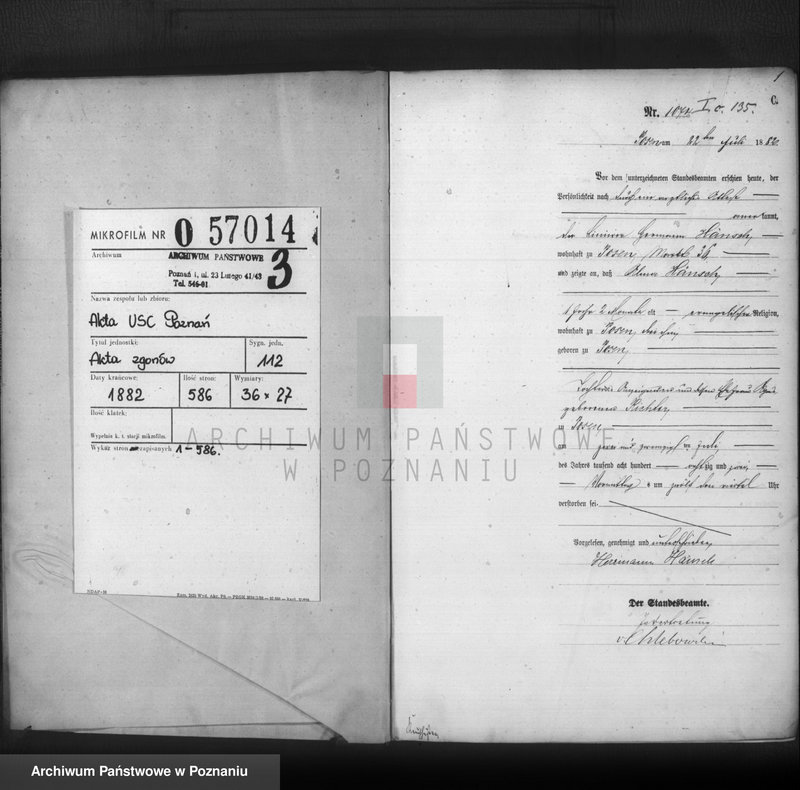 MIKROFILM NR 0 57014
Archiwum
ARCHIWUM PAŃSTWOWE
Poznań 1, ul. 23 Lutego 41/43
Tel. 546-01
3
Nazwa zespołu lub zbioru:
Akta USC Poznań
Tytuł jednostki:
Akta zgonów
Sygn. jedn.
112
Daty krańcowe:
1882
Ilość stron:
586
Wymiary:
36 x 27
Ilość klatek:
Wypełnia k. t. skryt mikrofilm.
Wykaz stron zapisanych 1-586.
ARCHIWUM PAŃSTWOWE
W POZNANIU
1
C.
Nr. I c. 135.
Posen am 22ten Juli 1882
Vor dem unterzeichneten Standesbeamten erschien heute, der
Persönlichkeit nach
kannt,
der Hermann Hänsch,
wohnhaft zu Posen, Markt 36
und zeigte an, daß Hänsch,
1 Jahr 2 Monate alt evangelischer Religion,
wohnhaft zu Posen,
geboren zu Posen,
Tochter des Anzeigenden und dessen Ehefrau
geborenen Richter,
zu Posen
am zwei und zwanzigsten Juli
des Jahres tausend acht hundert achtzig und zwei,
Vormittag um Uhr
verstorben sei.
Vorgelesen, genehmigt und unterschrieben
Hermann Hänsch
Der Standesbeamte.
In Vertretung
Archiwum Państwowe w Poznaniu